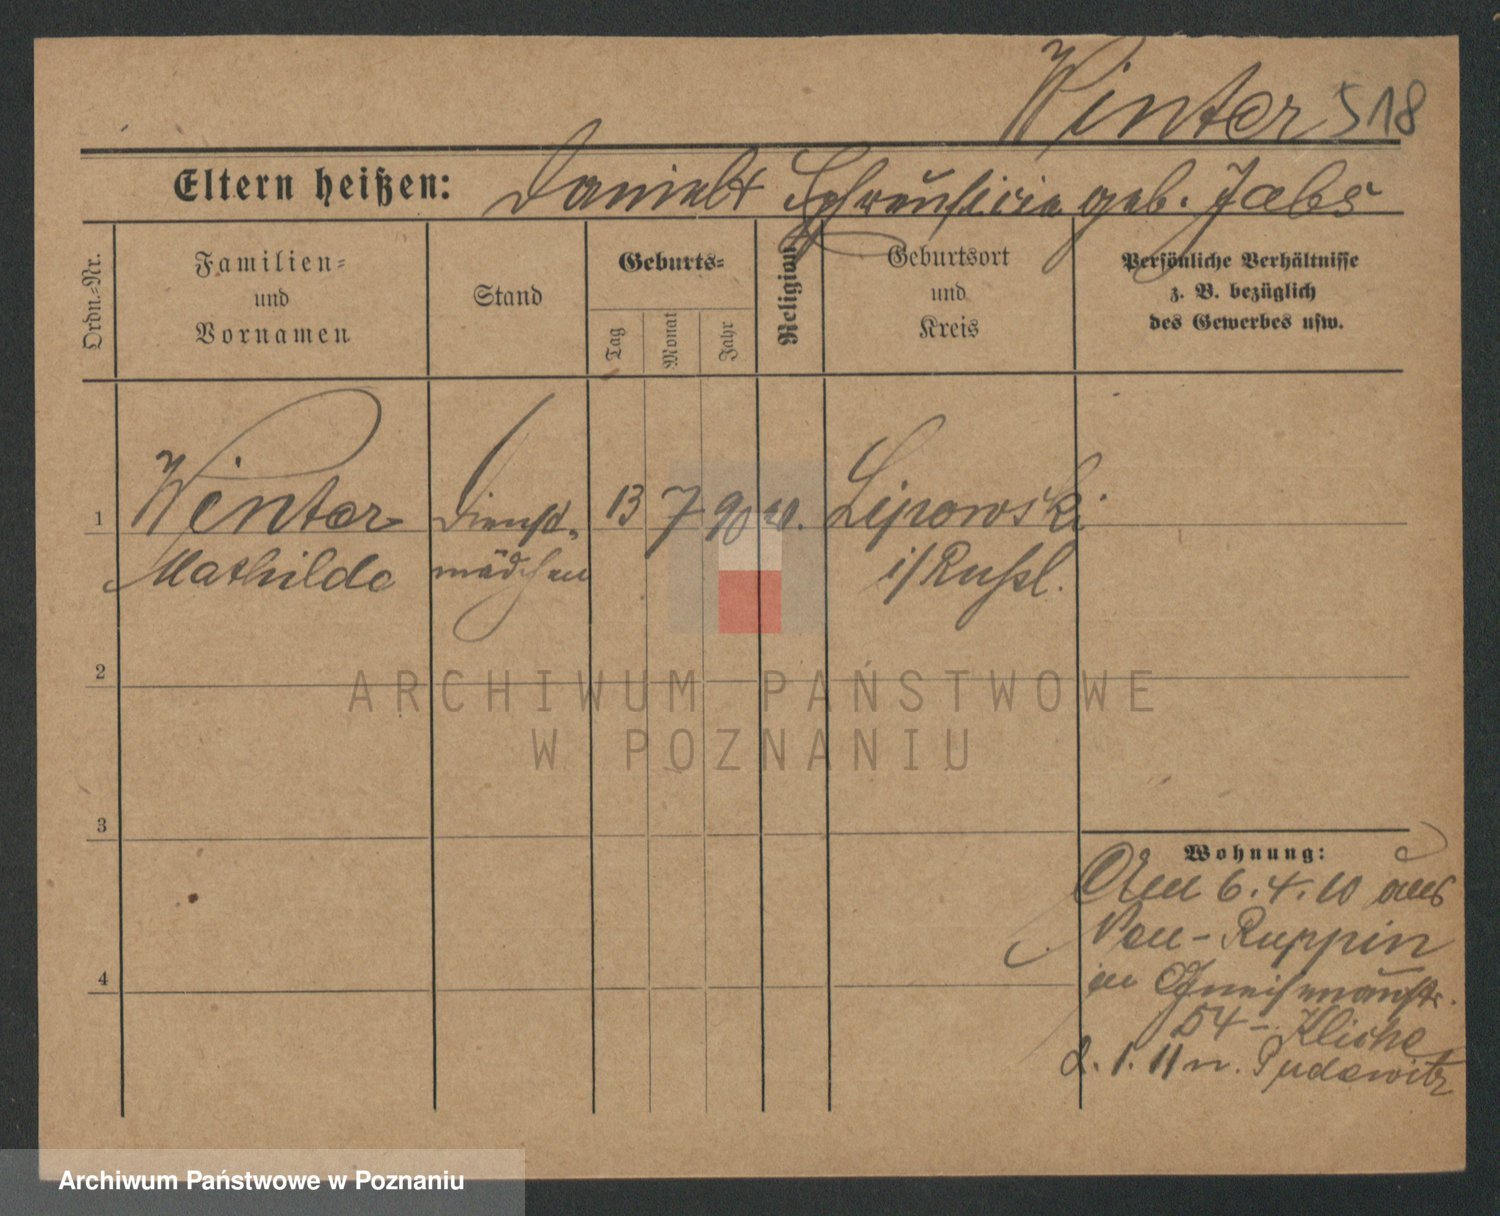 Winter 518
Eltern heißen: geb. Jabs
Ordn.-Nr.
Familien-
und
Vornamen
Stand
Geburts-
Tag
Monat
Jahr
Religion
Geburtsort
und
Kreis
Persönliche Verhältnisse
z. B. bezüglich
des Gewerbes usw.
1 Winter Dienst- 13 7 90 Lipowski
Mathilde mädchen i/Rußl.
2
3
4
Wohnung:
6.4.10 aus
Neu-Ruppin
Gneisenaustr.
54 - Kliche
2.1.11 n. Pudewitz
ARCHIWUM PAŃSTWOWE
W POZNANIU
Archiwum Państwowe w Poznaniu